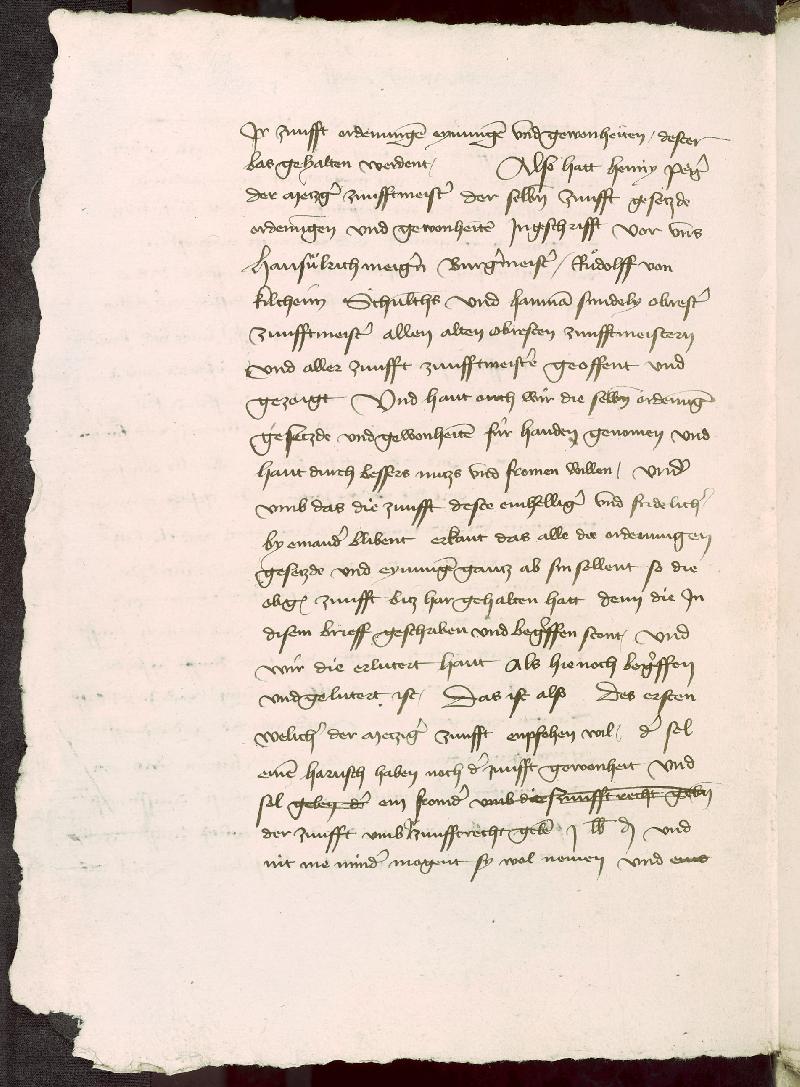 Ir zunfft ordenungē eynungē vnd gewonheiten / dester
bas gehalten werdent / Also hatt henny
der Metzg̉ zunfftmeist̉ der selbn̄ zunfft gesetzde
ordenūgen vnd gewonheitē Ingeschrifft vor vns
Hansůlrich meign̉ Burg̉meist̉ / Růdolff von
kilcheim Schulths vnd obrest̉
zunfftmeist̉ allen alten obresten zunfftmeistern
vnd aller zunfft zunfftmeist̉e geoffent vnd
gezoigt Vnd hant ouch wir die selbn̄ ordenūg
gesetzde vnd gewonheitē fúr handen genomen vnd
hant durch bessers nutzs vnd fromen willen / vnd̉
vmb das die zunfft deste einhellig̉ vnd fridelich̉
by einand̉ blibent erkant das alle die ordenungen
gesetzde vnd eynungē gantz ab sin sollent so die
obḡ zunfft bitz har gehalten hatt denn die In
disem brieff geschriben vnd begr̉iffen stont / vnd
wir die erlutert hant Als hienoch begr̉iffen
vnd gelutert ist / Das ist also Des ersten
welich̉ der Metzg̉ zunfft enpfohen wil / d̉ sol
einē harnsch haben noch d̉ zunfft gewonheit vnd
sol geben d̉ ein fromd̉ vmb die zunfft recht gebn̄
der zunfft vmb zunfftrecht gebē j lb d vnd
nit me mind̉ mogent sy wol nemen vnd